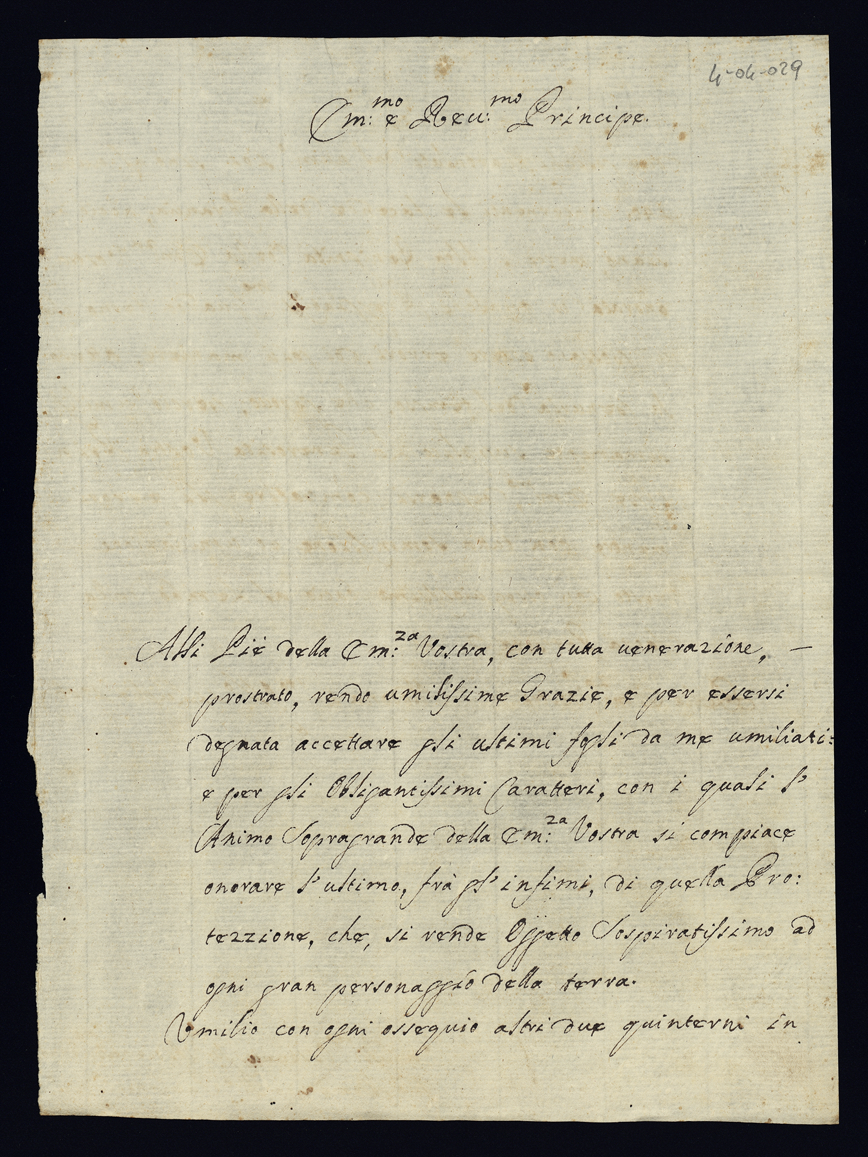 4-04-029
Em:mo e Reu:mo Principe.
Alli Piè della Em:za Vostra, con tutta uenerazione, —
prostrato, rendo umilissime Grazie, e per essersi
degnata accettare gli ultimi fogli da me umiliati:
e per gli Obligantissimi Caratteri, con i quali l'
Animo Sopragrande della Em:za Vostra si compiace
onorare l'ultimo, frà gl'infimi, di quella Pro:
tezzione, che, si rende Oggetto Sospiratissimo ad
ogni gran personaggio della terra.
Vmilio con ogni ossequio altri due quinterni in